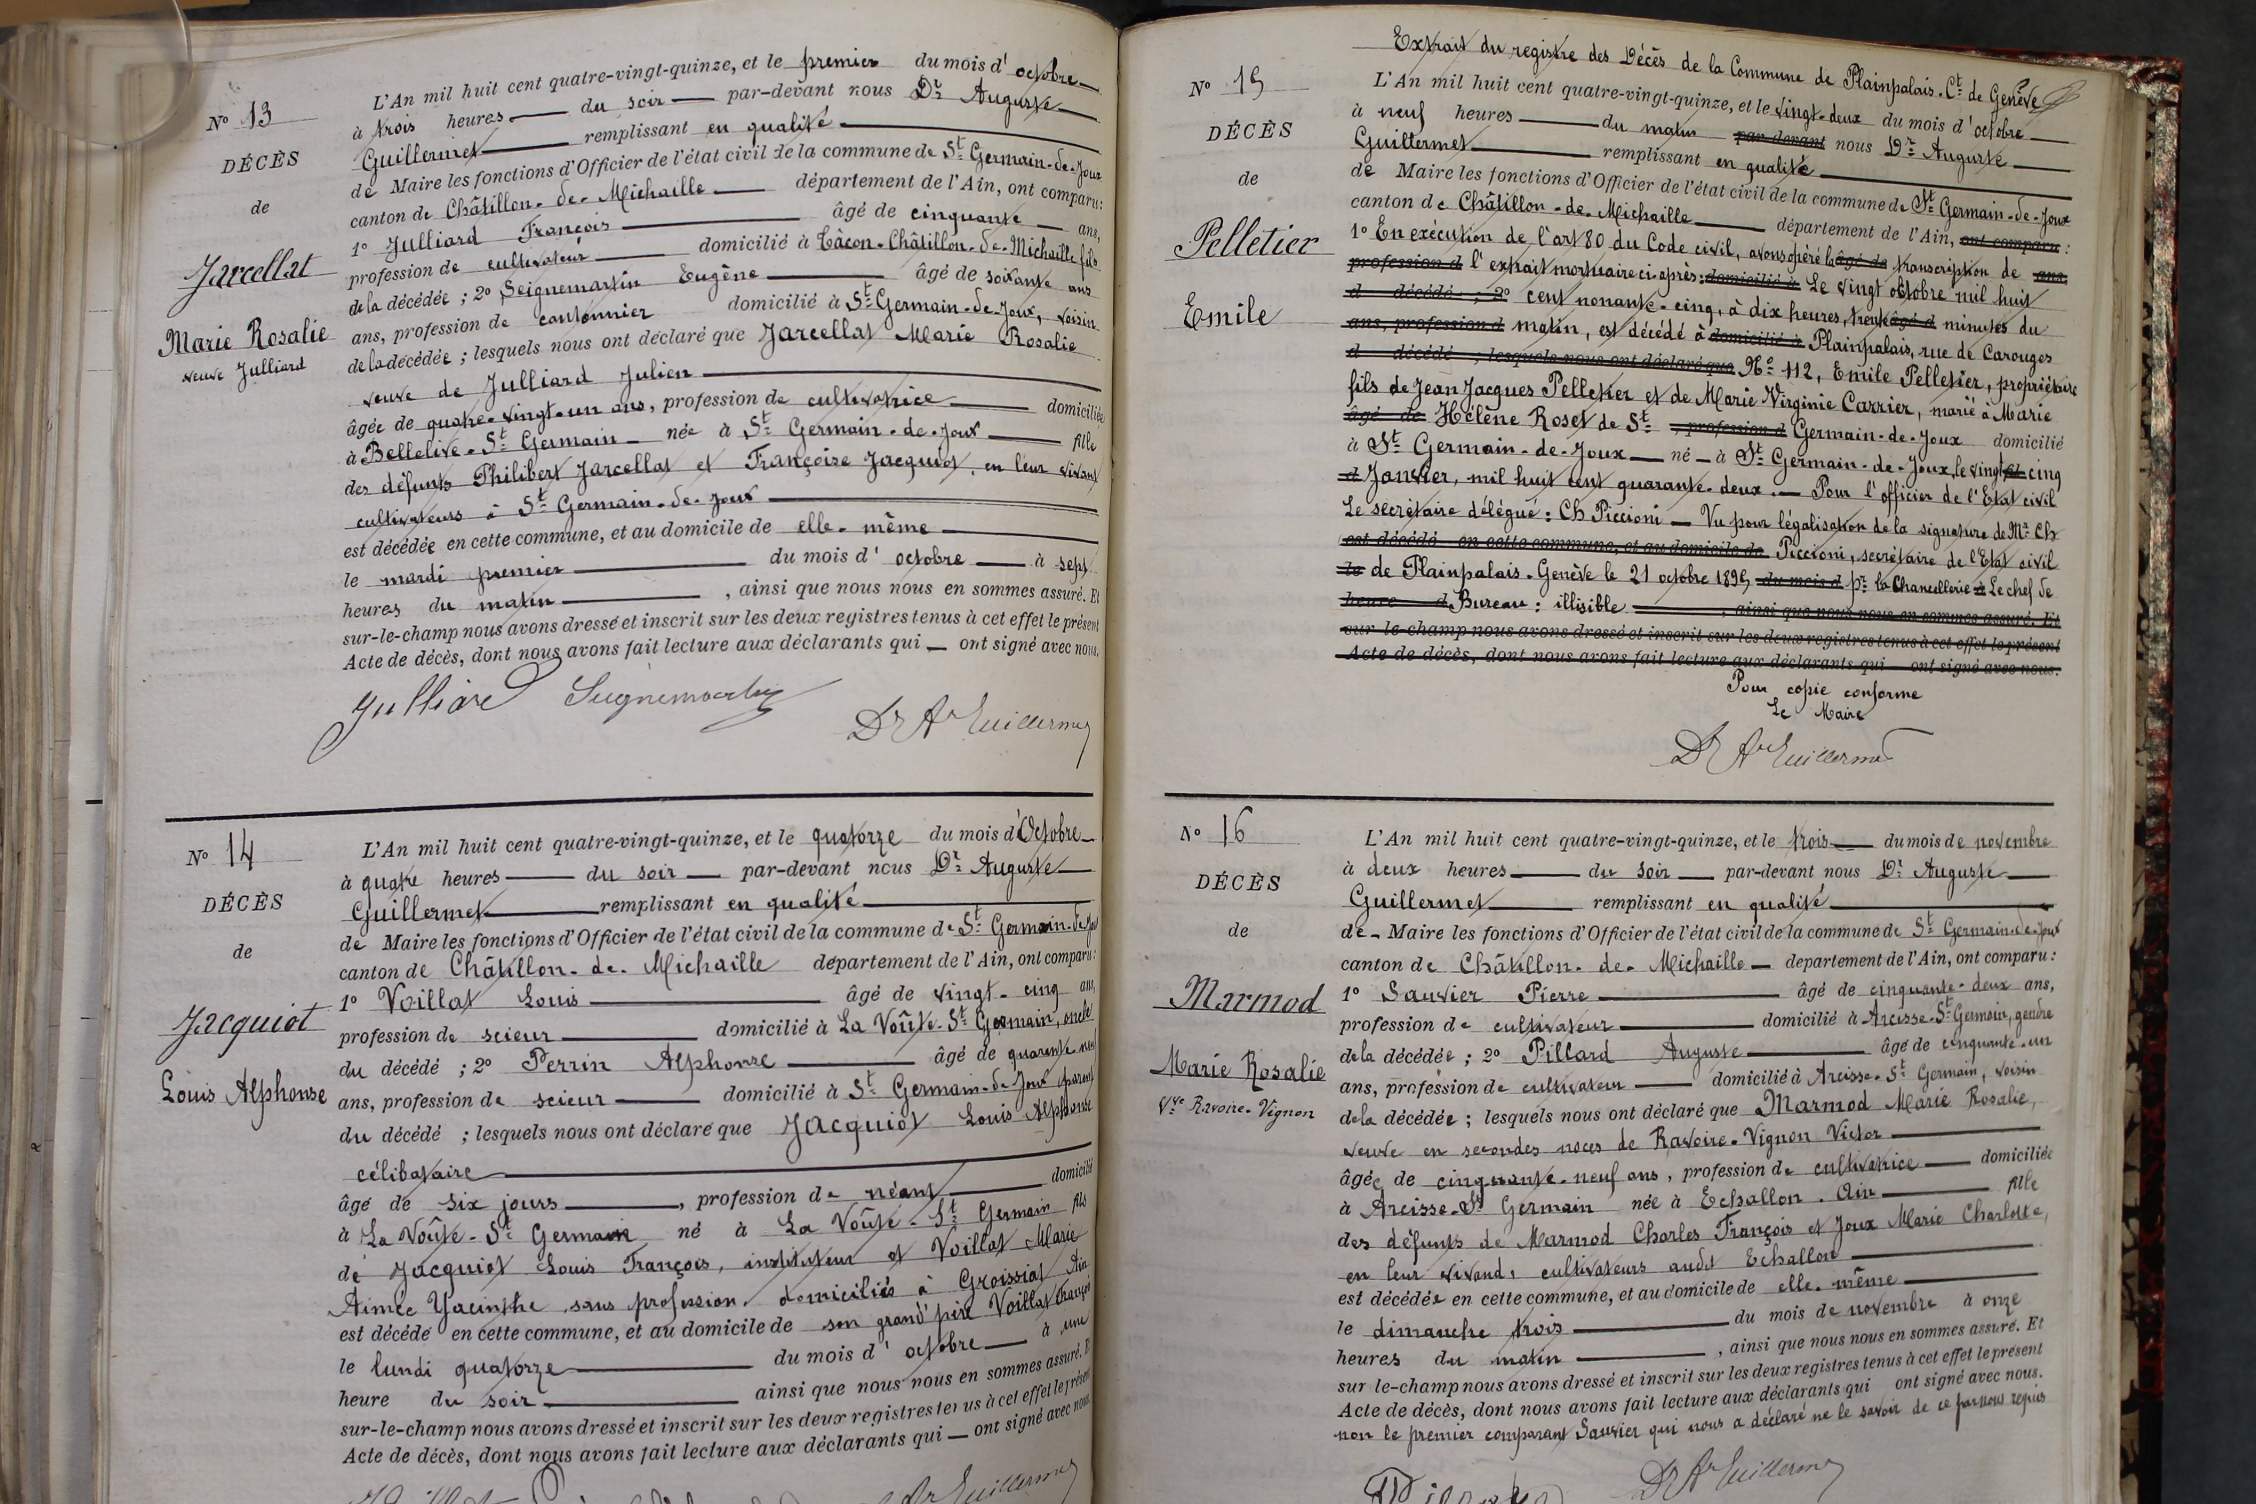 N° 13
DÉCÈS
de
Jarcellat
Marie Rosalie
veuve Julliard
L'An mil huit cent quatre-vingt-quinze, et le premier du mois d' octobre
à trois heures du soir par-devant nous Dr Auguste
Guillermet remplissant en qualité
de Maire les fonctions d'Officier de l'état civil de la commune de St Germain-de-Joux
canton de Châtillon-de-Michaille département de l'Ain, ont comparu:
1° Julliard François âgé de cinquante ans,
profession de cultivateur domicilié à Tâcon-Châtillon-de-Michaille fils
de la décédée ; 2° Seignemartin Eugène âgé de soixante ans
ans, profession de cantonnier domicilié à St Germain-de-Joux, voisin
de la décédée ; lesquels nous ont déclaré que Jarcellat Marie Rosalie
veuve de Julliard Julien
âgée de quatre-vingt-un ans, profession de cultivatrice domiciliée
à Belleive-St Germain née à St Germain-de-Joux fille
des défunts Philibert Jarcellat et Françoise Jacquiot, en leur vivant
cultivateurs à St Germain-de-Joux
est décédée en cette commune, et au domicile de elle-même
le mardi premier du mois d' octobre à sept
heures du matin , ainsi que nous nous en sommes assuré. Et
sur-le-champ nous avons dressé et inscrit sur les deux registres tenus à cet effet le présent
Acte de décès, dont nous avons fait lecture aux déclarants qui ont signé avec nous.
Julliard Seignemartin
Dr Ate Guillermet
N° 14
DÉCÈS
de
Jacquiot
Louis Alphonse
L'An mil huit cent quatre-vingt-quinze, et le quatorze du mois d'Octobre
à quatre heures du soir par-devant nous Dr Auguste
Guillermet remplissant en qualité
de Maire les fonctions d'Officier de l'état civil de la commune de St Germain-de-Joux
canton de Châtillon-de-Michaille département de l'Ain, ont comparu:
1° Voillat Louis âgé de vingt-cinq ans,
profession de scieur domicilié à La Voûte-St Germain, oncle
du décédé ; 2° Perrin Alphonse âgé de quarante-neuf
ans, profession de scieur domicilié à St Germain-de-Joux parent
du décédé ; lesquels nous ont déclaré que Jacquiot Louis Alphonse
célibataire
âgé de six jours , profession de néant domicilié
à La Voûte-St Germain né à La Voûte-St Germain fils
de Jacquiot Louis François, instituteur et Voillat Marie
Aimée Yacinthe, sans profession, domiciliés à Groissiat Ain
est décédé en cette commune, et au domicile de son grand'père Voillat François
le lundi quatorze du mois d' octobre à une
heure du soir ainsi que nous nous en sommes assuré. Et
sur-le-champ nous avons dressé et inscrit sur les deux registres tenus à cet effet le présent
Acte de décès, dont nous avons fait lecture aux déclarants qui ont signé avec nous.
Guillermet
Extrait du registre des Décès de la Commune de Plainpalais. Ct de Genève
N° 15
DÉCÈS
de
Pelletier
Emile
L'An mil huit cent quatre-vingt-quinze, et le vingt-deux du mois d'octobre
à neuf heures du matin par-devant nous Dr Auguste
Guillermet remplissant en qualité
de Maire les fonctions d'Officier de l'état civil de la commune de St Germain-de-Joux
canton de Châtillon-de-Michaille département de l'Ain, ont comparu :
1° En exécution de l'art 80 du Code civil, avons opéré la âgé de transcription de ans,
profession d l'extrait mortuaire ci après: domicilié à Le vingt octobre mil huit
d décédé ; 2° cent nonante-cinq, à dix heures, trente âgé d minutes du
ans, profession d matin, est décédé à domicilié à Plainpalais, rue de Carouges
d décédé ; lesquels nous ont déclaré que N° 112, Emile Pelletier, propriétaire
fils de Jean Jacques Pelletier et de Marie Virginie Carrier, marié à Marie
âgé de Hélène Roset de St , profession d Germain-de-Joux domicilié
à St Germain-de-Joux né à St Germain-de-Joux, le vingt et cinq
d Janvier, mil huit cent quarante-deux. Pour l'officier de l'Etat civil
Le secrétaire délégué : Ch Piccioni Vu pour légalisation de la signature de Mr Ch
est décédé en cette commune, et au domicile de Piccioni, secrétaire de l'Etat civil
le de Plainpalais. Genève le 21 octobre 1895 du mois d pr la Chancellerie à Le chef de
heure d Bureau : illisible , ainsi que nous nous en sommes assuré. Et
sur-le-champ nous avons dressé et inscrit sur les deux registres tenus à cet effet le présent
Acte de décès, dont nous avons fait lecture aux déclarants qui ont signé avec nous.
Pour copie conforme
Le Maire
Dr Ate Guillermet
N° 16
DÉCÈS
de
Marmod
Marie Rosalie
Vve Ravoire-Vignon
L'An mil huit cent quatre-vingt-quinze, et le trois du mois de novembre
à deux heures du soir par-devant nous Dr Auguste
Guillermet remplissant en qualité
de Maire les fonctions d'Officier de l'état civil de la commune de St Germain-de-Joux
canton de Châtillon-de-Michaille département de l'Ain, ont comparu :
1° Sauvier Pierre âgé de cinquante-deux ans,
profession de cultivateur domicilié à Arcisse-St Germain, gendre
de la décédée ; 2° Pillard Auguste âgé de cinquante-un
ans, profession de cultivateur domicilié à Arcisse-St Germain, voisin
de la décédée ; lesquels nous ont déclaré que Marmod Marie Rosalie,
veuve en secondes noces de Ravoire-Vignon Victor
âgée de cinquante-neuf ans, profession de cultivatrice domiciliée
à Arcisse-St Germain née à Echallon. Ain fille
des défunts de Marmod Charles François et Joux Marie Charlotte,
en leur vivand, cultivateurs audit Echallon
est décédée en cette commune, et au domicile de elle-même
le dimanche trois du mois de novembre à onze
heures du matin , ainsi que nous nous en sommes assuré. Et
sur le-champ nous avons dressé et inscrit sur les deux registres tenus à cet effet le présent
Acte de décès, dont nous avons fait lecture aux déclarants qui ont signé avec nous.
non le premier comparant Sauvier qui nous a déclaré ne le savoir de ce par nous requis
Dr Ate Guillermet